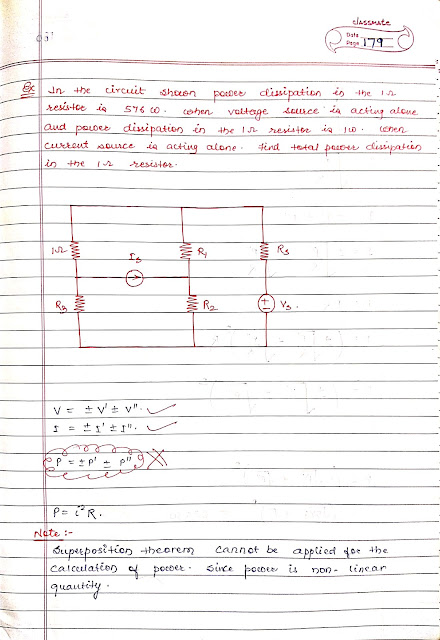 classmate
Date
Page 179
Ex In the circuit shown power dissipation in the 1Ω
resistor is 576 W. when voltage source is acting alone
and power dissipation in the 1Ω resistor is 1W. when
current source is acting alone. find total power dissipation
in the 1Ω resistor.
1Ω Is R1 Rs
R3 R2 Vs.
V = ± V' ± V".
I = ± I' ± I".
P = ± P' ± P"
P = i²R.
Note :-
Superposition theorem cannot be applied for the
calculation of power. Since power is non-linear
quantity.